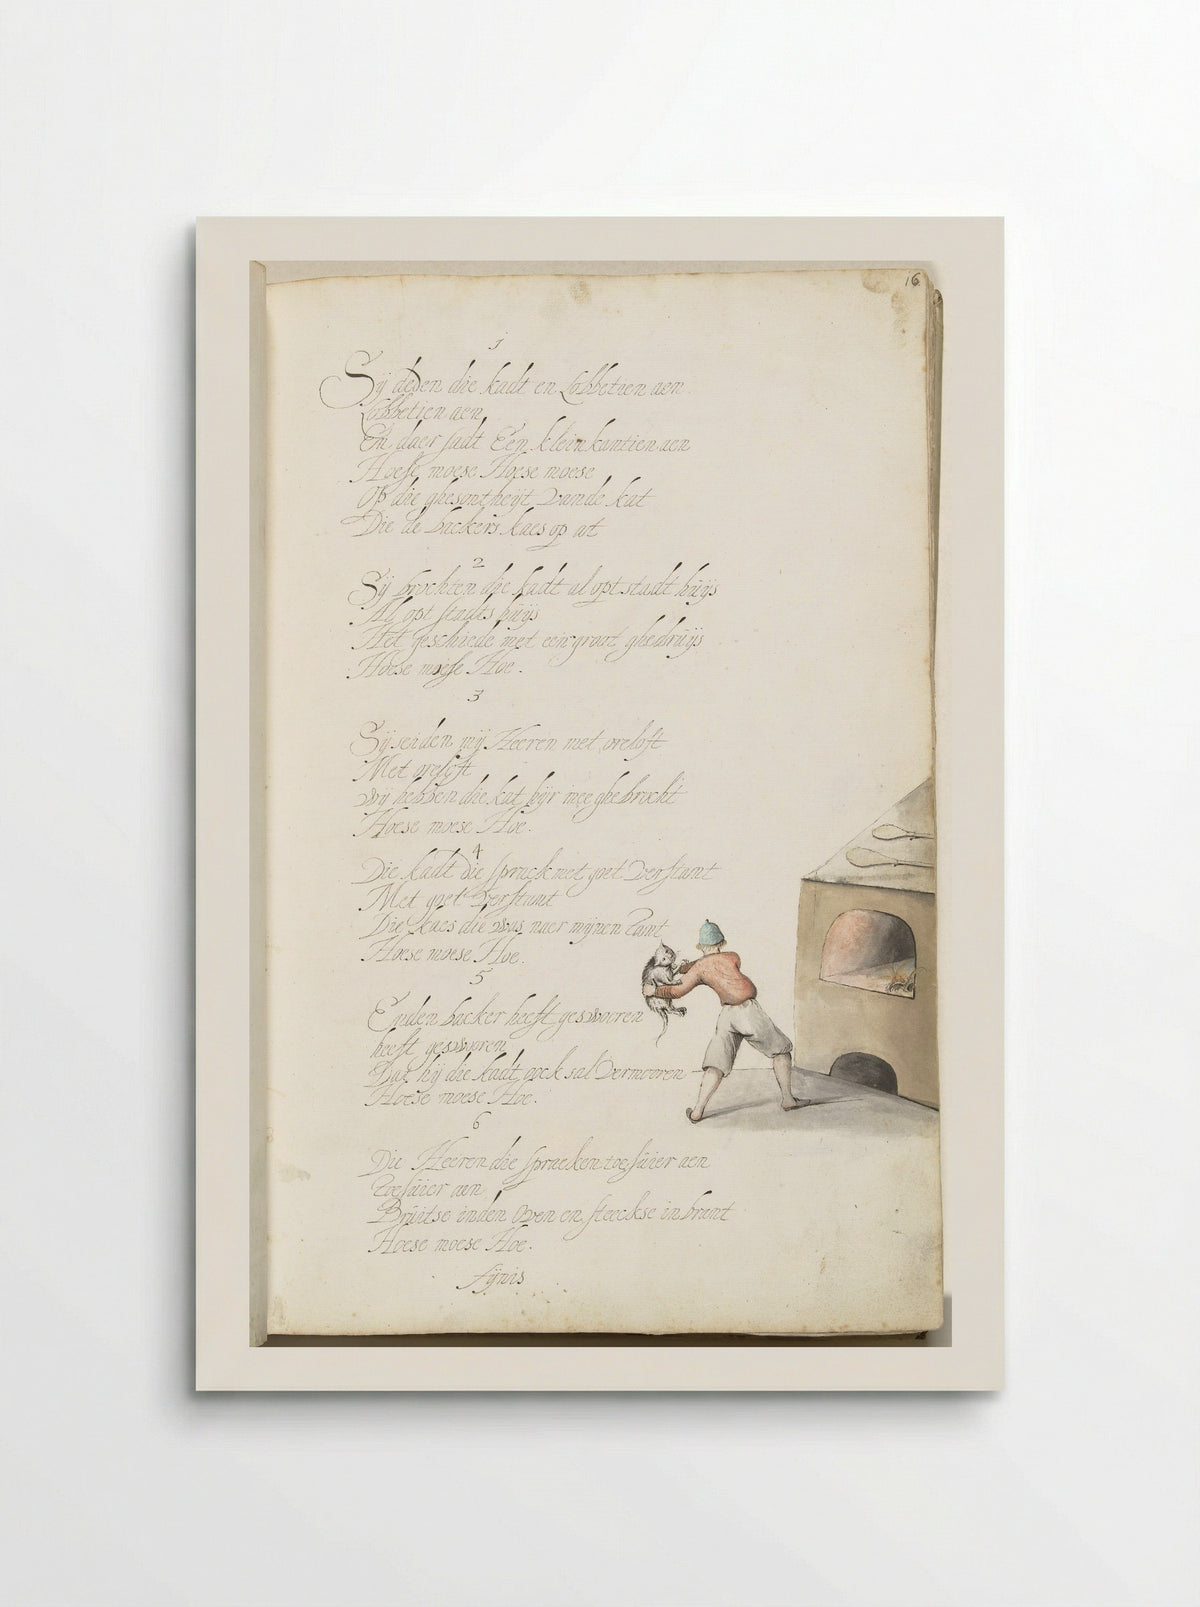 16
1
Sij deden die kadt en Lobbetien aen
Lobbetien aen
En daer sadt Een klein kantien aen
Hoese moese Hoese moese
Op die ghesontheijt vande kat
Die de backers kaes op at
2
Sij brochten die kadt al opt stadt huijs
Al opt stadts huijs
Het geschiede met een groot ghedruijs
Hoese moese Hoe.
3
Sij seiden mij Heeren met oreloft
Met oreloft
wij hebben die kat hijr mee ghebrocht
Hoese moese Hoe.
4
Die kadt die sprack met goet verstant
Met goet verstant
Die kaes die was naer mijnen tant
Hoese moese Hoe.
5
Enden backer heeft geswooren
heeft geswooren
Dat hij die kadt oock sal vermooren
Hoese moese Hoe.
6
Die Heeren die spraecken toe
Bruitse inden oven en steeckse in brant
Hoese moese Hoe.
fijnis